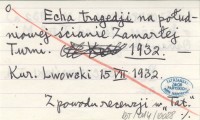 Echa tragedji na połud-
niowej ścianie Zamarłej
Turni. 1932. —
Kur. Lwowski 15 VII 1932.
Z powodu recenzji w "Tat."